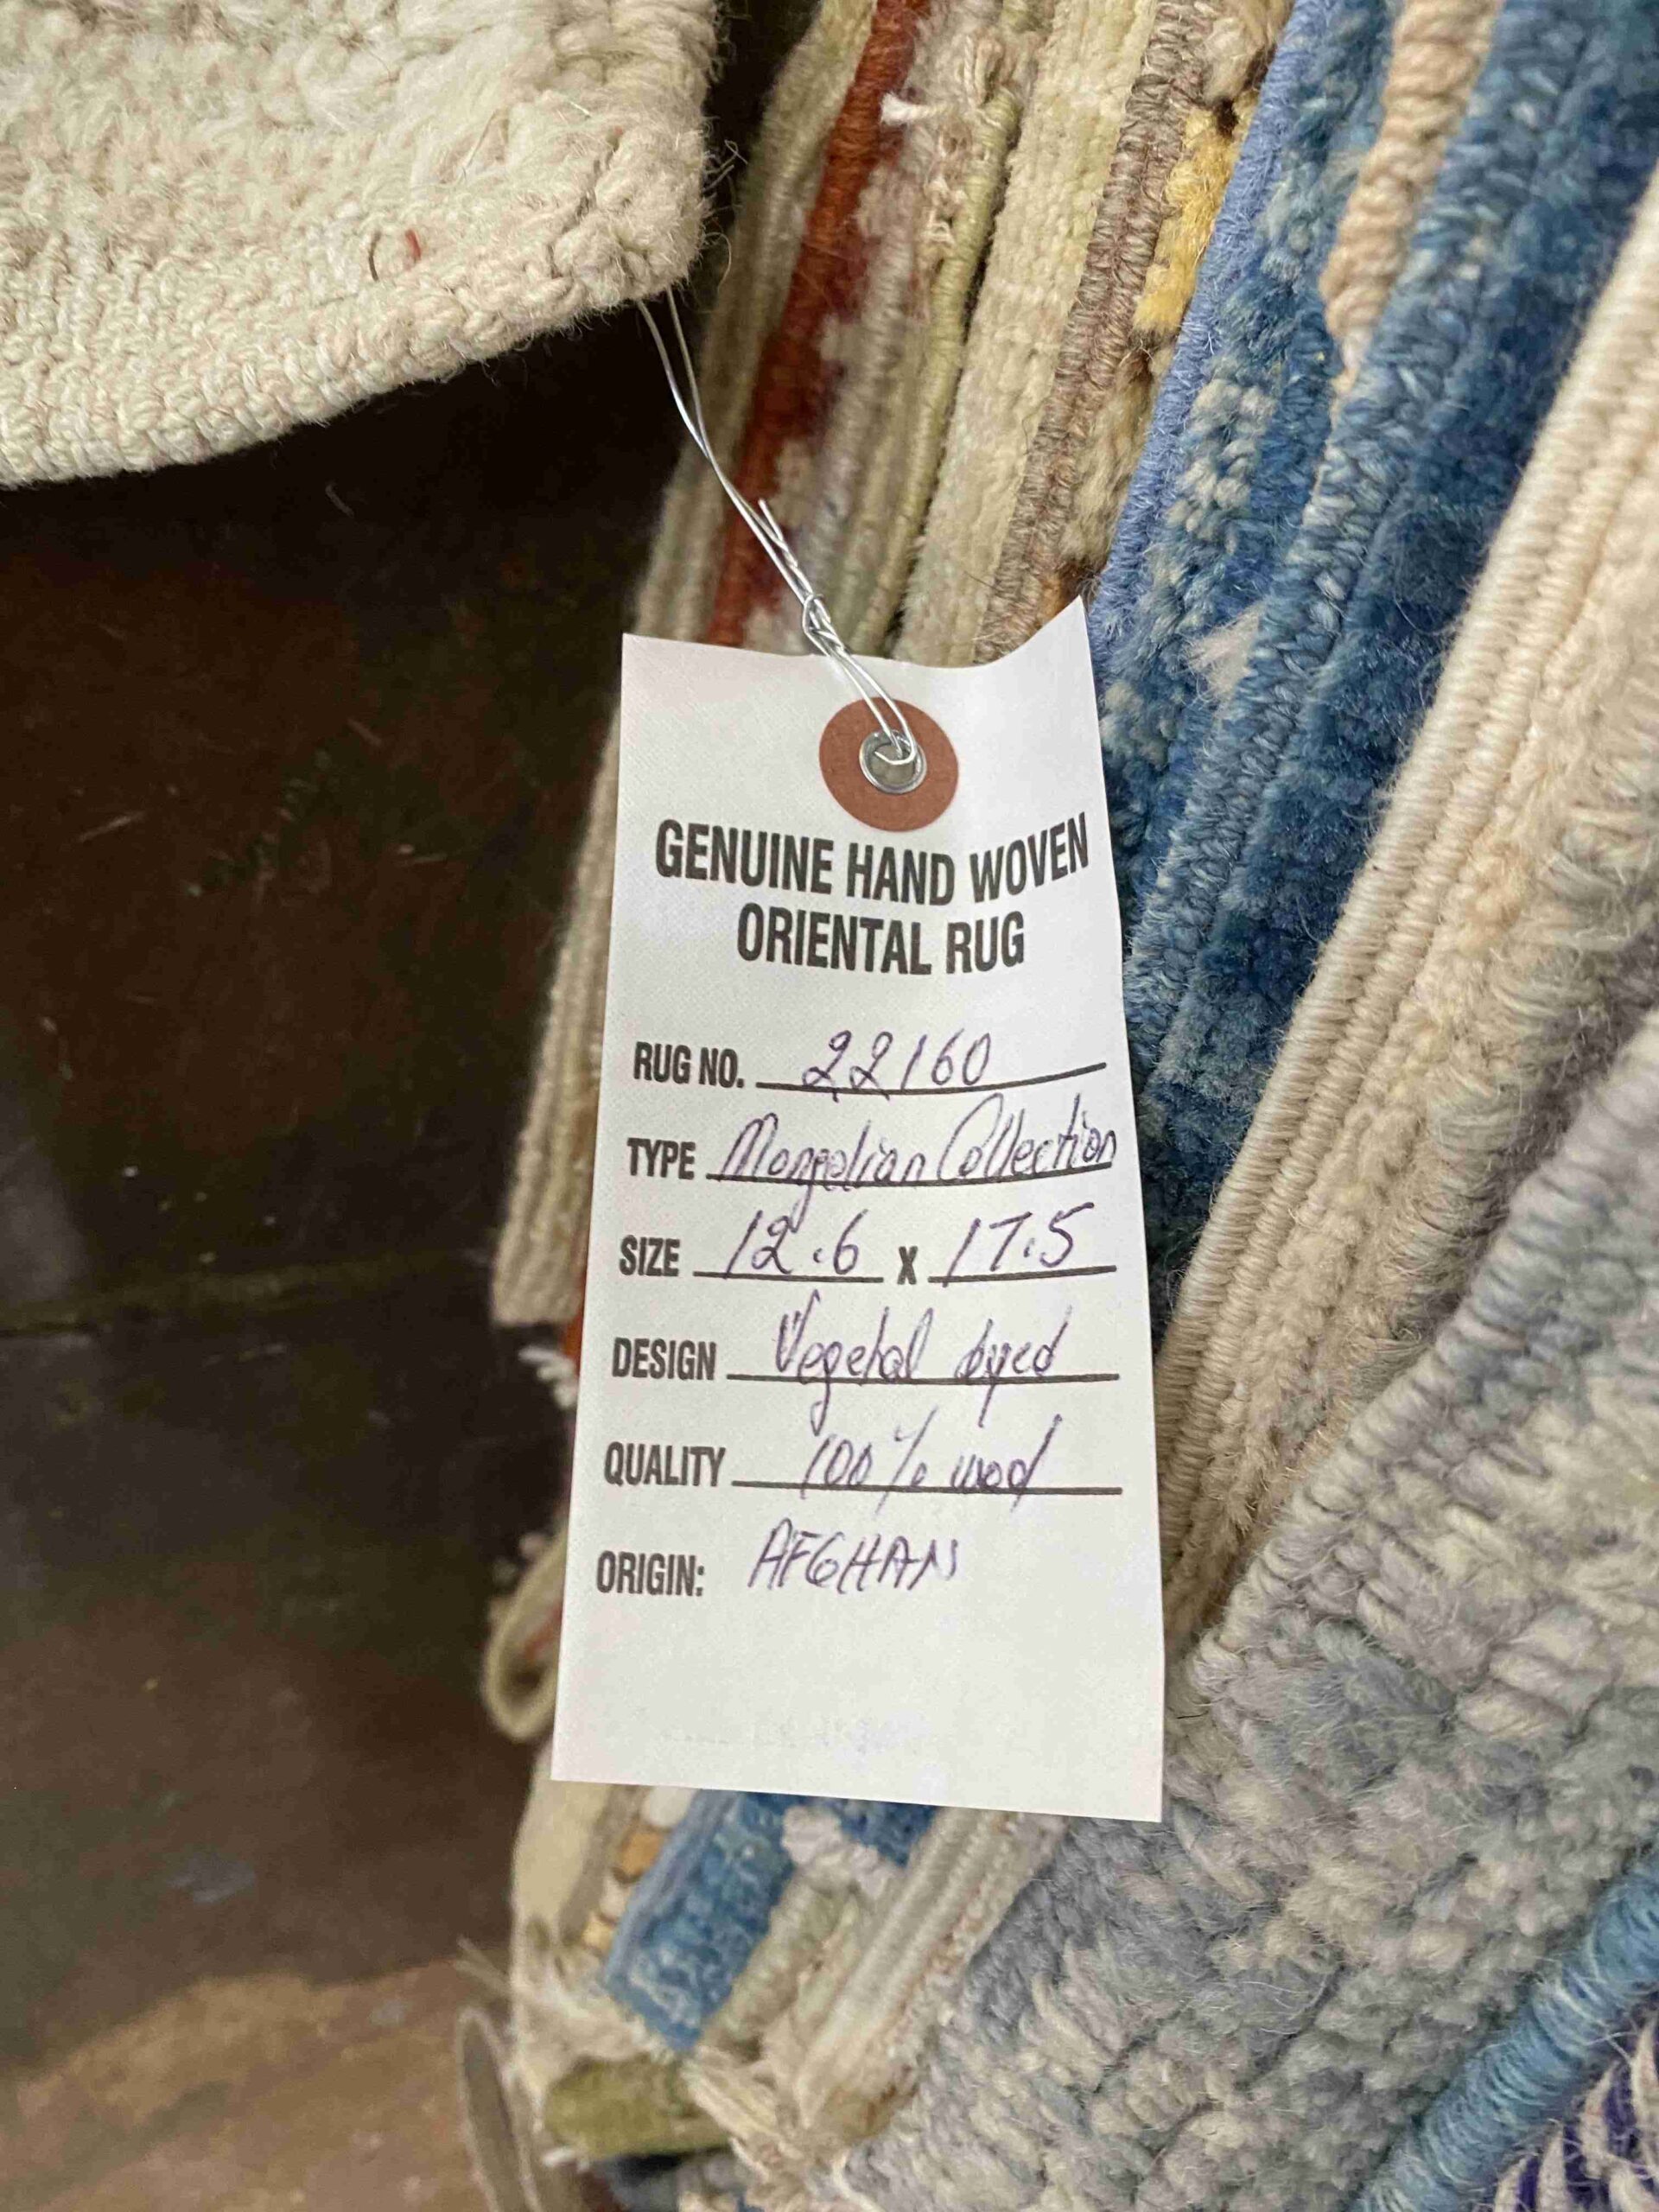 GENUINE HAND WOVEN
ORIENTAL RUG
RUG NO. 22160
TYPE Mongolian Collection
SIZE 12.6 x 17.5
DESIGN Vegetal dyed
QUALITY 100% wool
ORIGIN: AFGHAN